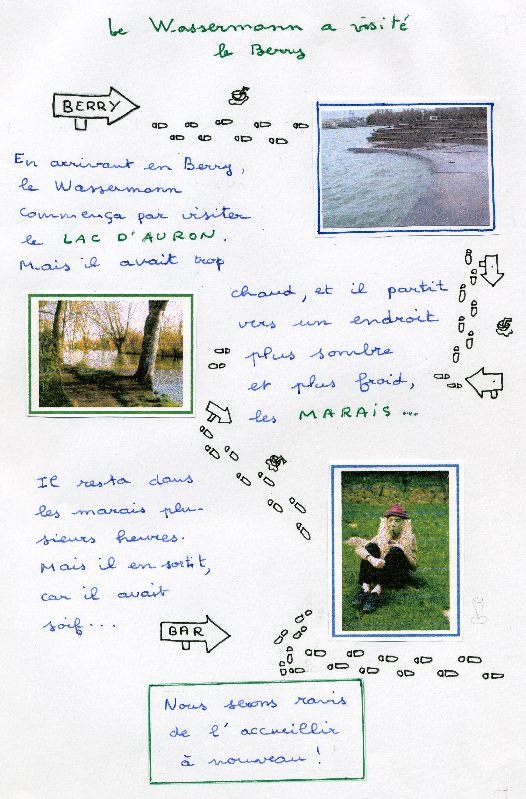 Le Wassermann a visité
le Berry
BERRY
En arrivant en Berry,
le Wassermann
commença par visiter
le LAC D'AURON.
Mais il avait trop
chaud, et il partit
vers un endroit
plus sombre
et plus froid,
les MARAIS...
Il resta dans
les marais plu-
sieurs heures.
Mais il en sortit,
car il avait
soif...
BAR
Nous serons ravis
de l'accueillir
à nouveau !